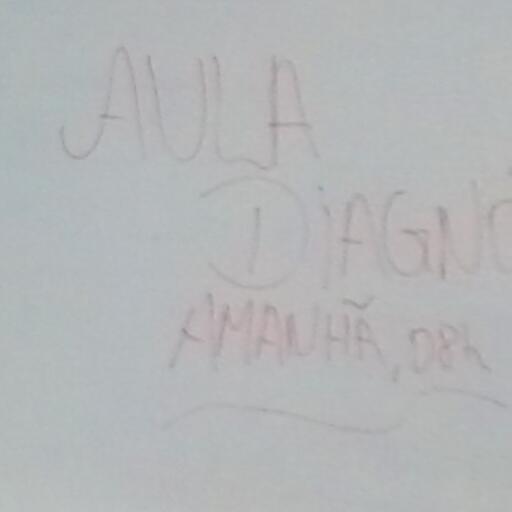 AULA
DiAGNÓ
AMANHÃ, 08h